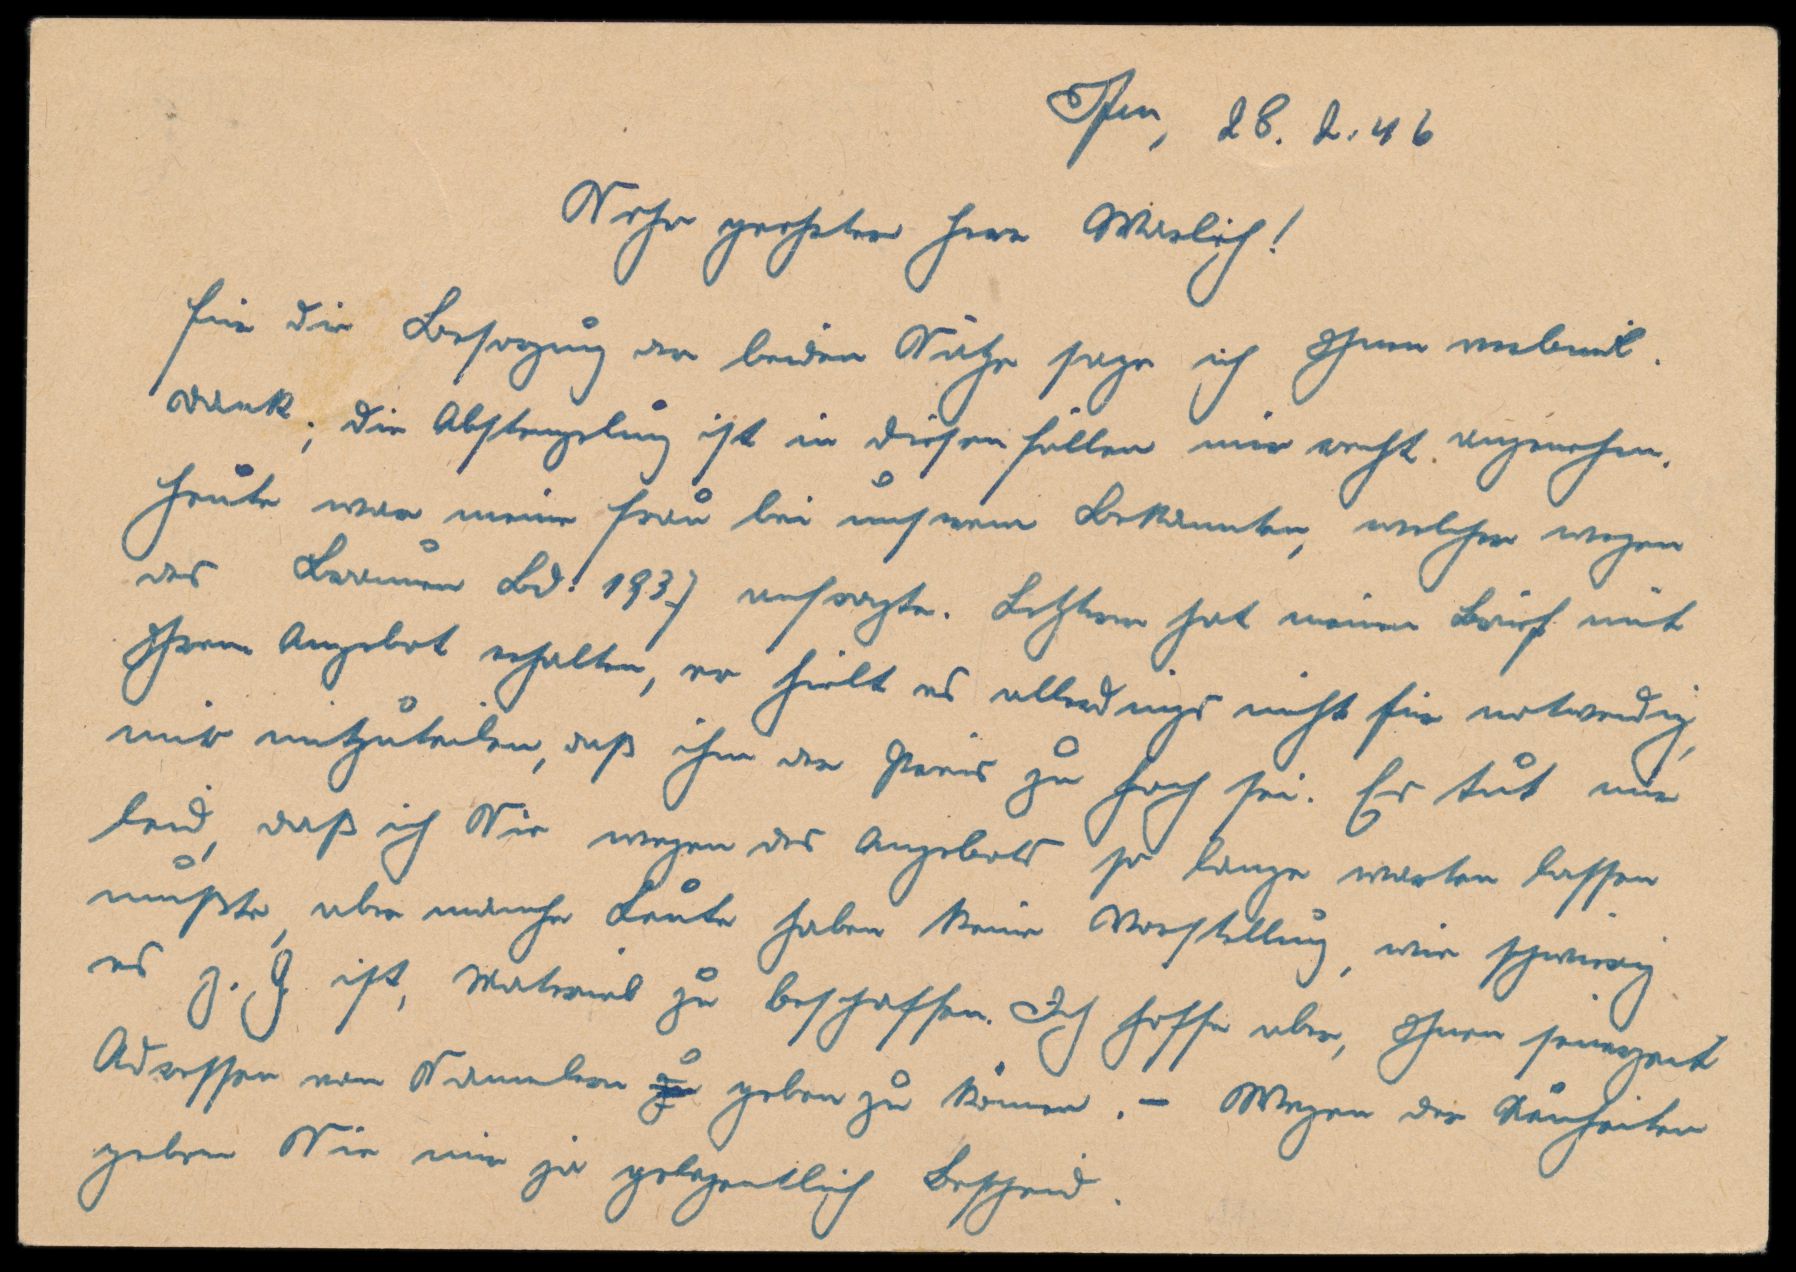 28.2.46
Sehr geehrter Herr Warlich!
Für die Besorgung der beiden Sätze sage ich Ihnen verbindl.
Dank; die Abstempelung ist in diesen Fällen mir recht angenehm.
Heute war meine Frau bei unserem Bekannten, welcher wegen
des Braunen Bd. 1937 anfragte. Letzterer hat meinen Brief mit
Ihrem Angebot erhalten, er hielt es allerdings nicht für notwendig,
mir mitzuteilen, daß ihm der Preis zu hoch sei. Es tut mir
leid, daß ich Sie wegen des Angebots so lange warten lassen
mußte, aber manche Leute haben keine Vorstellung, wie schwierig
es z. Z. ist, Material zu beschaffen. Ich hoffe aber, Ihnen seinerzeit
Adressen von Sammlern geben zu können. – Wegen der Neuheiten
geben Sie mir ja gelegentlich Bescheid.